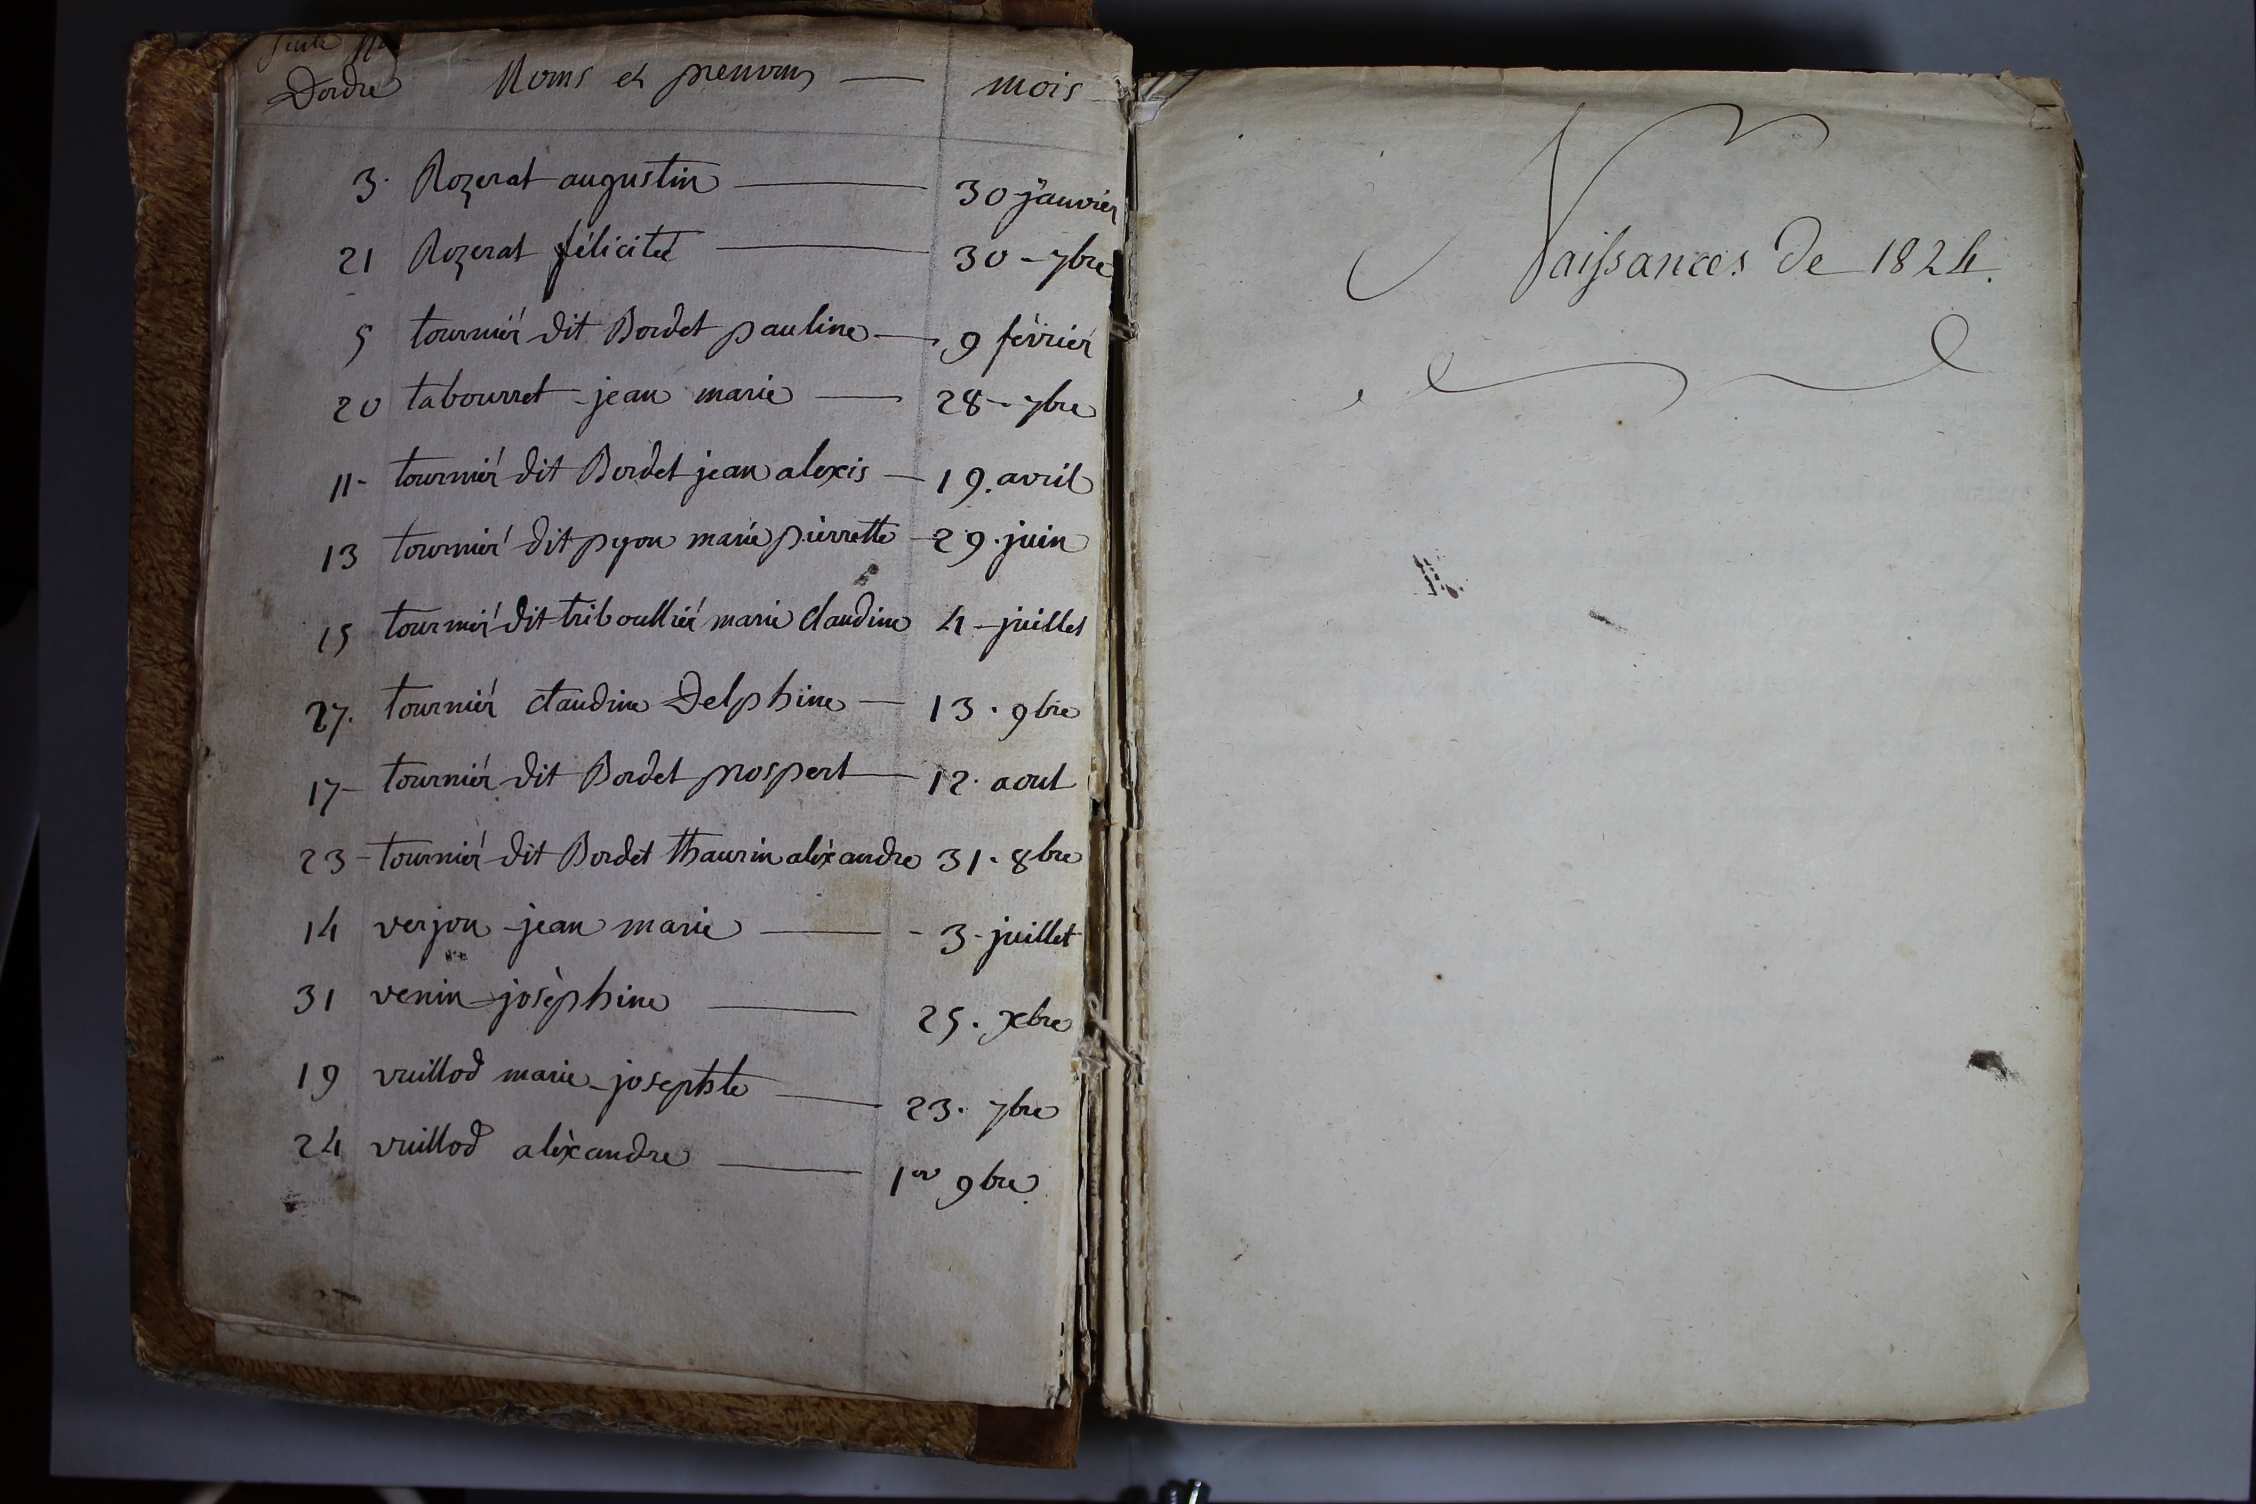 Suite
Dordre Noms et prenoms — mois
3. Rozerat augustin — 30 janvier
21 Rozerat félicité — 30 - 7bre
5 tournier dit Bordet pauline — 9 février
20 tabourret jean marie — 28 - 7bre
11 - tournier dit Bordet jean alexis — 19. avril
13 tournier dit pyon marie pierrette - 29. juin
15 tournier dit triboullier marie Claudine 4 - juillet
27. tournier Claudine Delphine — 13. 9bre
17 - tournier dit Bordet prospert — 12. aout
23 - tournier dit Bordet thaurin aléxandre 31. 8bre
14 verjon jean marie — - 3 - juillet
31 venin joséphine — 25. xbre
19 vuillod marie josephte — 23. 7bre
24 vuillod aléxandre — 1er 9bre.
Naissances de 1824.